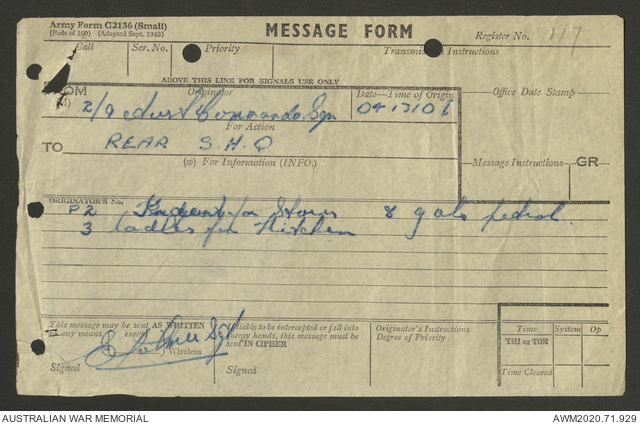 Army Form C2136 (Small)
(Pads of 100) (Adapted Sept. 1943)
MESSAGE FORM
Register No. 117
Call
Ser. No.
Priority
Transmission Instructions
ABOVE THIS LINE FOR SIGNALS USE ONLY
FROM
(A)
Originator
Date—Time of Origin
Office Date Stamp
2/9 Aust Commando Sqn
For Action
TO
REAR S.H.Q
(w) For Information (INFO.)
Message Instructions
GR
ORIGINATOR'S No.
P2 for Stores 8 gals petrol
3 ladles for kitchen
This message may be sent AS WRITTEN
by any means except
Wireless
Signed
Sgt
If liable to be intercepted or fall into
enemy hands, this message must be
sent IN CIPHER
Signed
Originator's Instructions
Degree of Priority
Time
System
Op
THI or TOR
Time Cleared
AUSTRALIAN WAR MEMORIAL
AWM2020.71.929